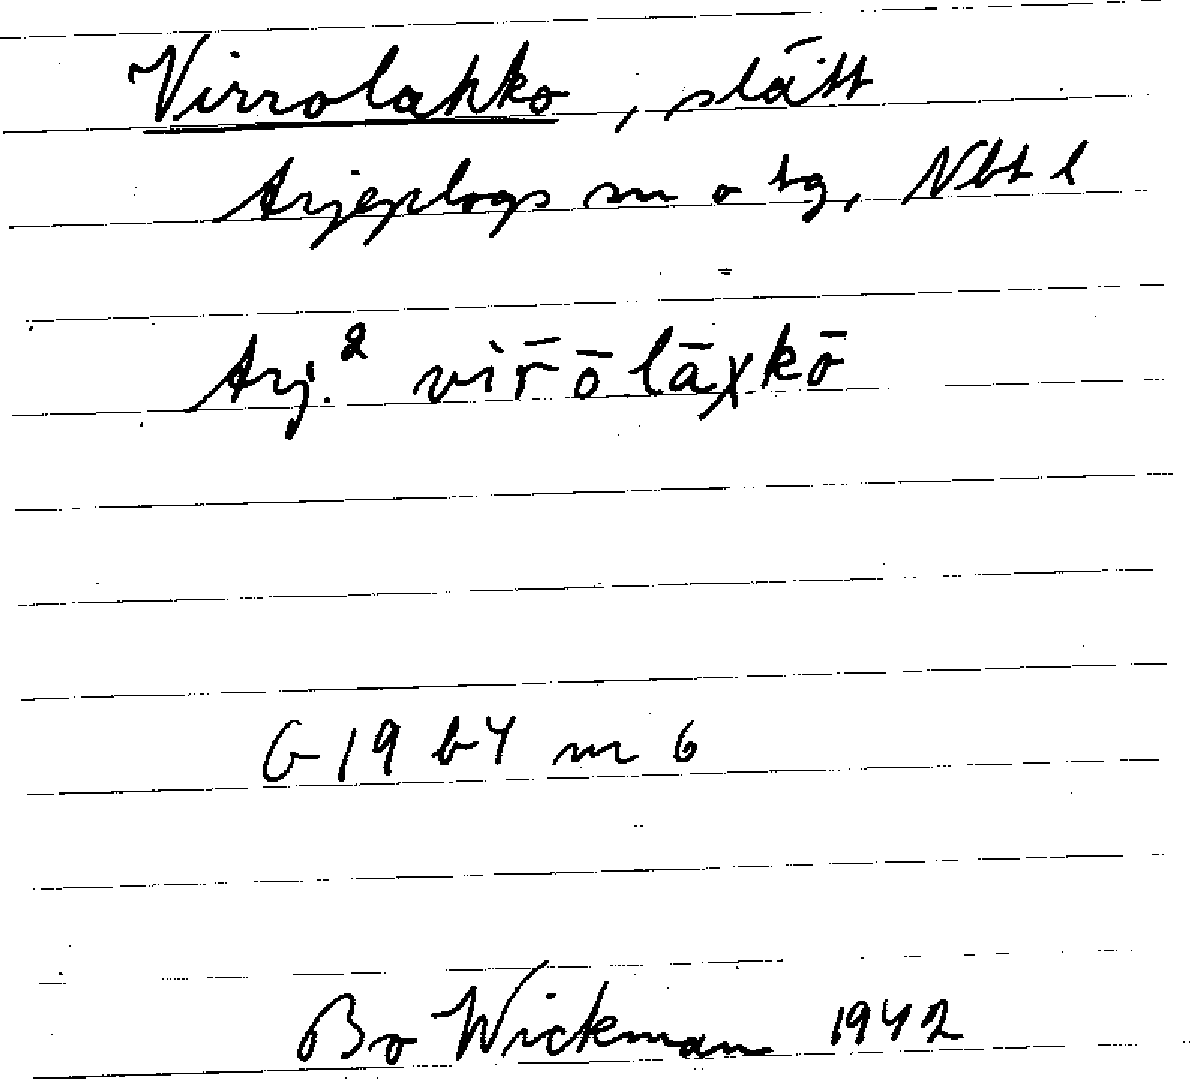 Virrolahko, slätt
Arjeplogs sn o tg, Nbt l
Arj.² vìr̄ōlāχkō
G 19 b4 m 6
Bo Wickman 1942